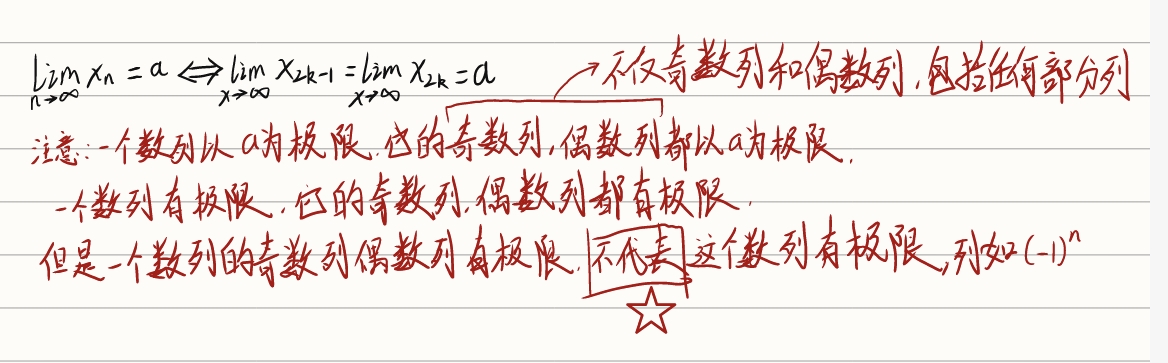 lim xₙ = a ⟺ lim x₂ₖ₋₁ = lim x₂ₖ = a
n→∞ x→∞ x→∞
不仅奇数列和偶数列,包括任何部分列
注意:一个数列以a为极限,它的奇数列,偶数列都以a为极限.
一个数列有极限.它的奇数列.偶数列都有极限.
但是一个数列的奇数列偶数列有极限.不代表这个数列有极限,列如(-1)ⁿ